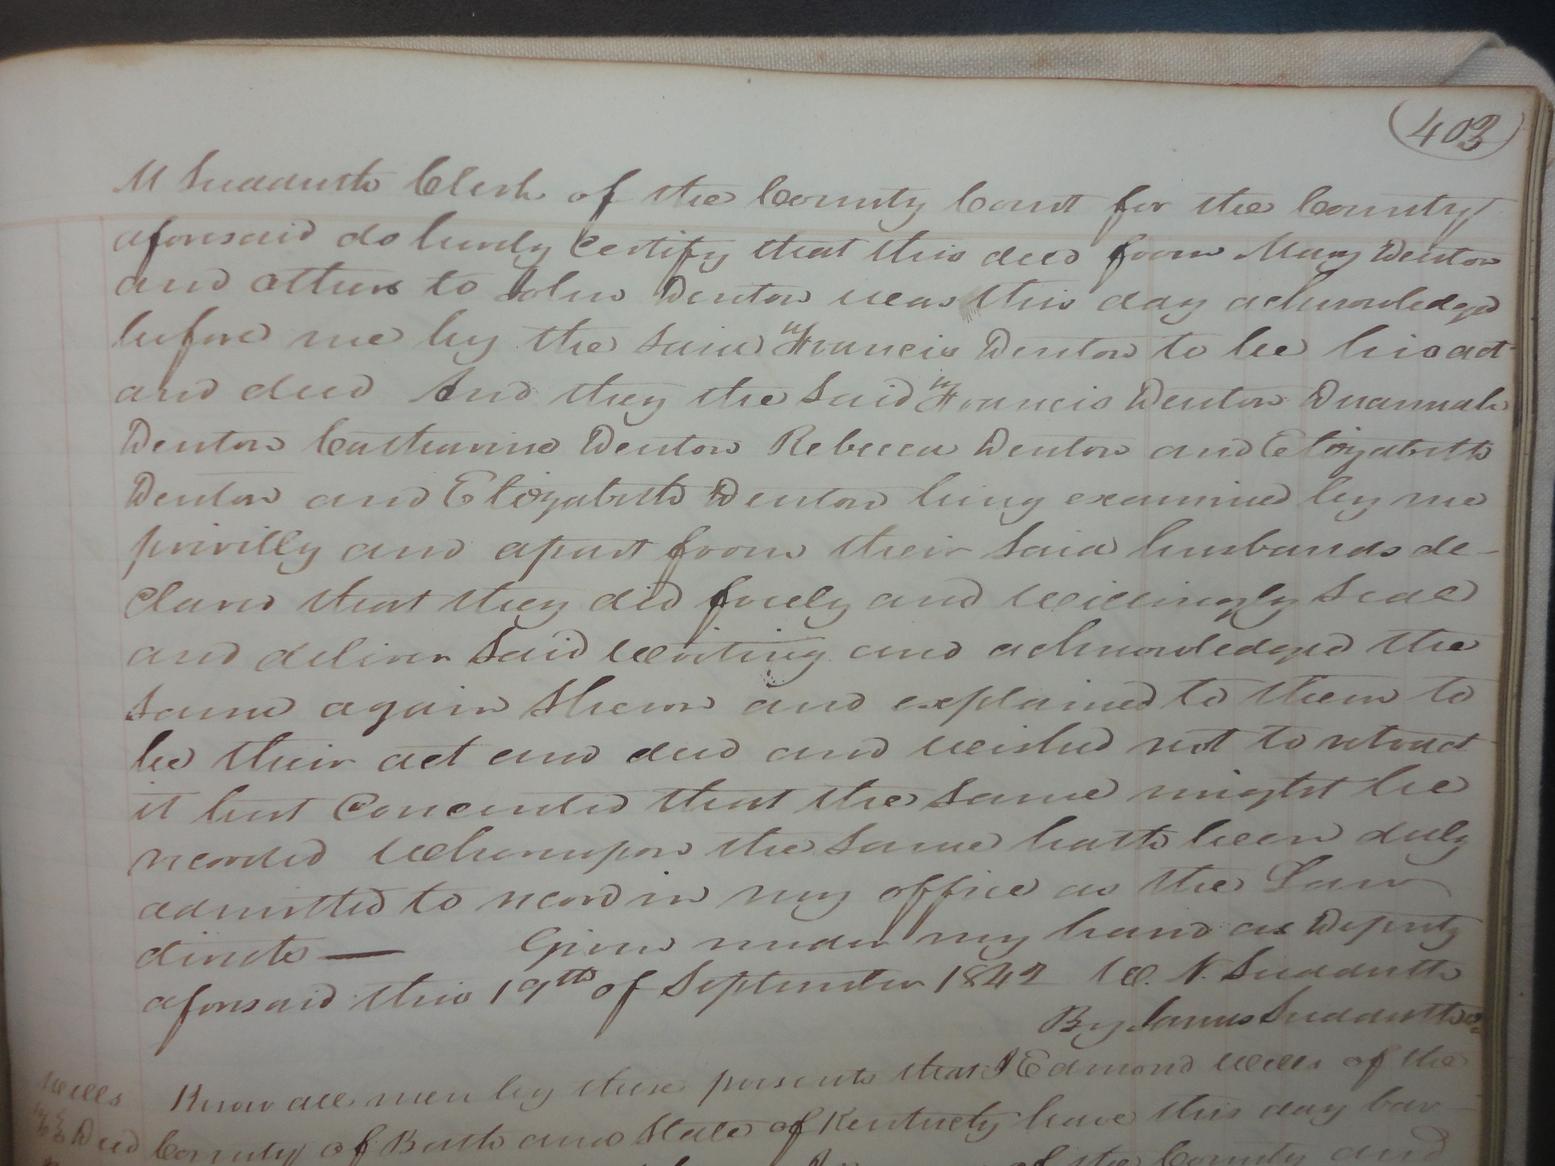 403
M Sudduth Clerk of the County Court for the County
aforesaid do hereby Certify that this deed from Mary Denton
and others to John Denton was this day acknowledged
before me by the said Francis Denton to be his act
and deed And they the Said Francis Denton Duannah
Denton Catharine Denton Rebecca Denton and Elizabeth
Denton and Elizabeth Denton being examined by me
privilly and apart from their said husbands de-
Clared that they did freely and willingly Seal
and deliver Said writing and acknowledged the
same again Shewn and explained to them to
be their act and deed and wished not to retract
it but Concented that the same might be
recorded Whereupon the same hath been duly
admitted to record in my office as the Law
directs — Given under my hand as Deputy
aforesaid this 19th of September 1842 W. N. Suddutth
By James Suddutth
Wells
Know all men by these presents that I Edmond Wells of the
Deed
County of Bath and State of Kentucky have this day bar-
of the County and